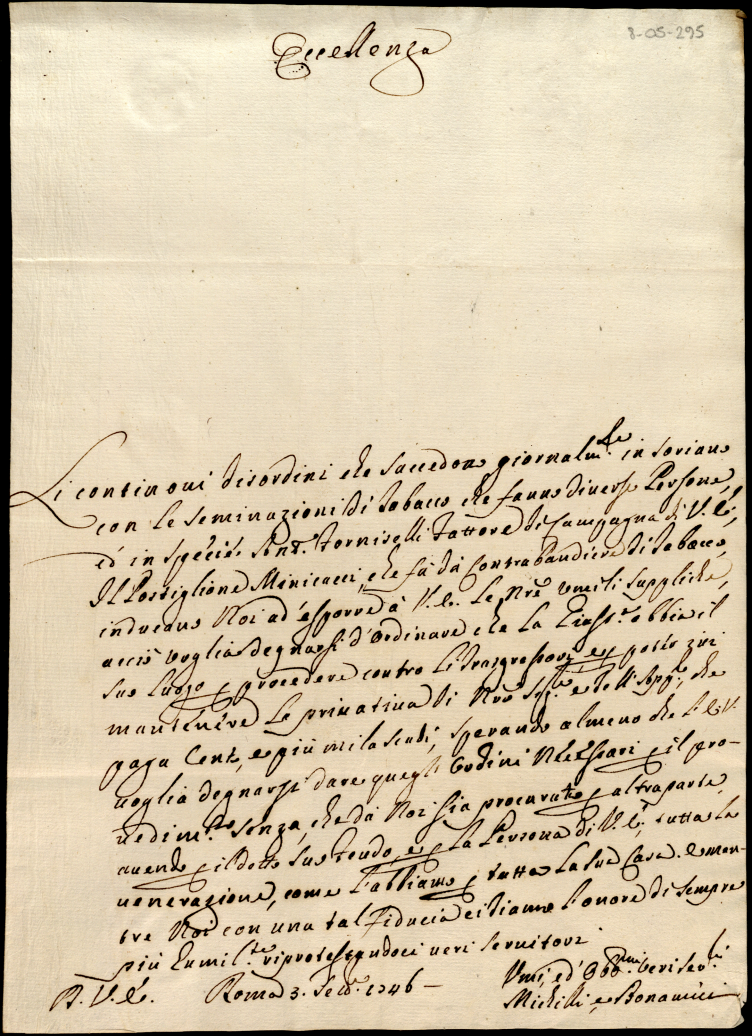 8-05-295
Eccellenza
Li continoui disordini che succedono giornalm.te in Soriano
con le seminazioni di Tabacco che fanno diverse Persone,
ed in specie Ant.o Torniselli Fattore di Campagna di V. E.,
Il Postiglione Minicacci, che fà da Contrabandiere di Tabacco,
inducano Noi ad esporre à V. E. le Nre umili suppliche,
acciò voglia degnarsi d'ordinare che La Giust.a abbia il
suo luogo procedere contro li Trasgressori e poter
mantenere La privativa di Nro Sig.re e dell'App.to, che
paga Cento, e più mila scudi, sperando almeno che l'E. V.
voglia degnarsi dare quegli Ordini Necessarj il pro-
vedim.to senza, che dà Noi sia procurato altra parte,
avendo il detto suo feudo, e La Persona di V. E. tutta la
venerazione, come l'abbiamo tutta La sua Casa. E men-
tre Noi con una tal fiducia ci diamo l'onore di sempre
più humil.te riprotestandoci veri servitori
A. V. E. Roma 3. 1746
Umi, ed Obb.mi veri ser.ri
Michilli e Bonamici